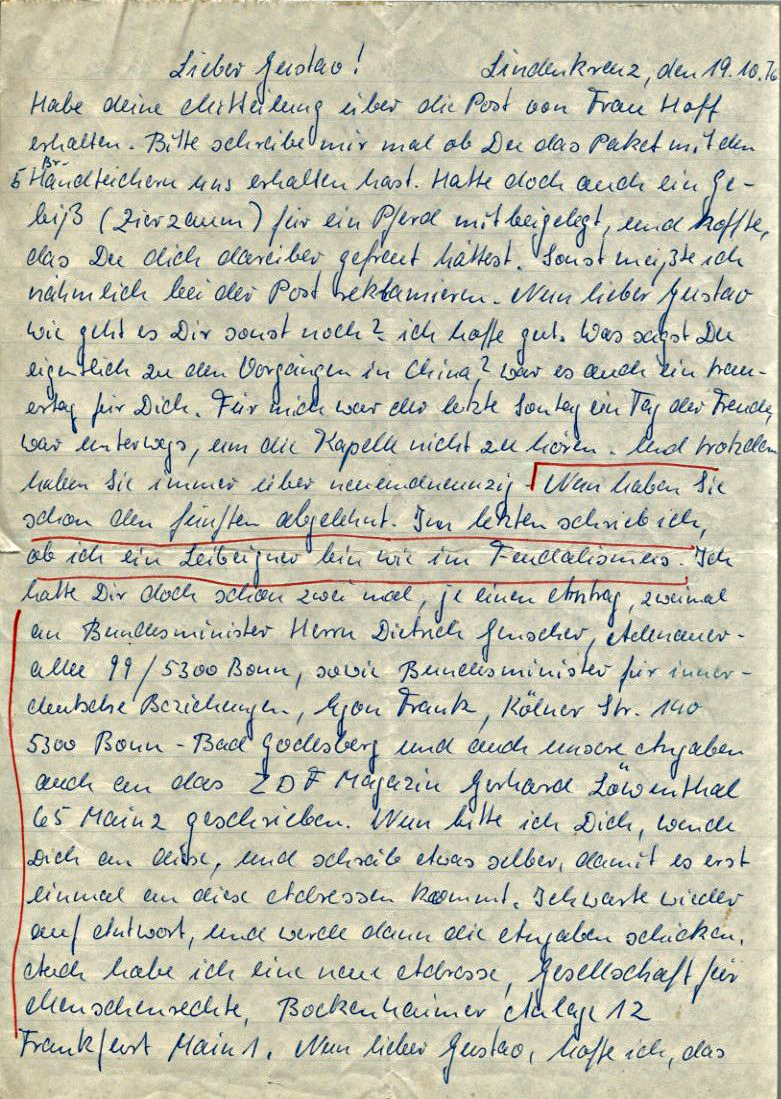 Lieber Gustav! Lindenkreuz, den 19.10.76
Habe deine Mitteilung über die Post von Frau Hoff
erhalten. Bitte schreibe mir mal ob Du das Paket mit den
Br-
5 Handteichern uns erhalten hast. Hatte doch auch ein Ge-
biß (Zierzaum) für ein Pferd mitbeigelegt, und hoffte,
das Du dich dareiber gefreut hättest. Sonst meißte ich
nähmlich bei der Post reklamieren. Nun lieber Gustav
wie geht es Dir sonst noch? ich hoffe gut. Was sagst Du
eigentlich zu den Vorgängen in China? war es auch ein trau-
ertag für Dich. Für mich war der letzte Sontag ein Tag der Freude,
war unterwegs, um die Kapelle nicht zu hören. Und trotzdem
haben Sie immer über neuendneunzig. Nun haben Sie
schon den fünften abgelehnt. Im letzten schrieb ich,
ob ich ein Leibeigner bin wie im Feudalismus. Ich
hatte Dir doch schon zwei mal, je einen Antrag, zweimal
an Bundesminister Herrn Dietrich Genscher, Adenauer-
allee 99/5300 Bonn, sowie Bundesminister für inner-
deutsche Beziehungen, Egon Frank, Kölner Str. 140
5300 Bonn - Bad Godesberg und auch unsere Angaben
auch an das ZDF Magazin Gerhard Löwenthal
65 Mainz geschrieben. Nun bitte ich Dich, wende
Dich an diese, und schreib etwas selber, damit es erst
einmal an diese Adressen kommt. Ich warte wieder
auf Antwort, und werde dann die Angaben schicken.
Auch habe ich eine neue Adresse, Gesellschaft für
Menschenrechte, Bockenheimer Anlage 12
Frankfurt Main 1. Nun lieber Gustav, hoffe ich, das